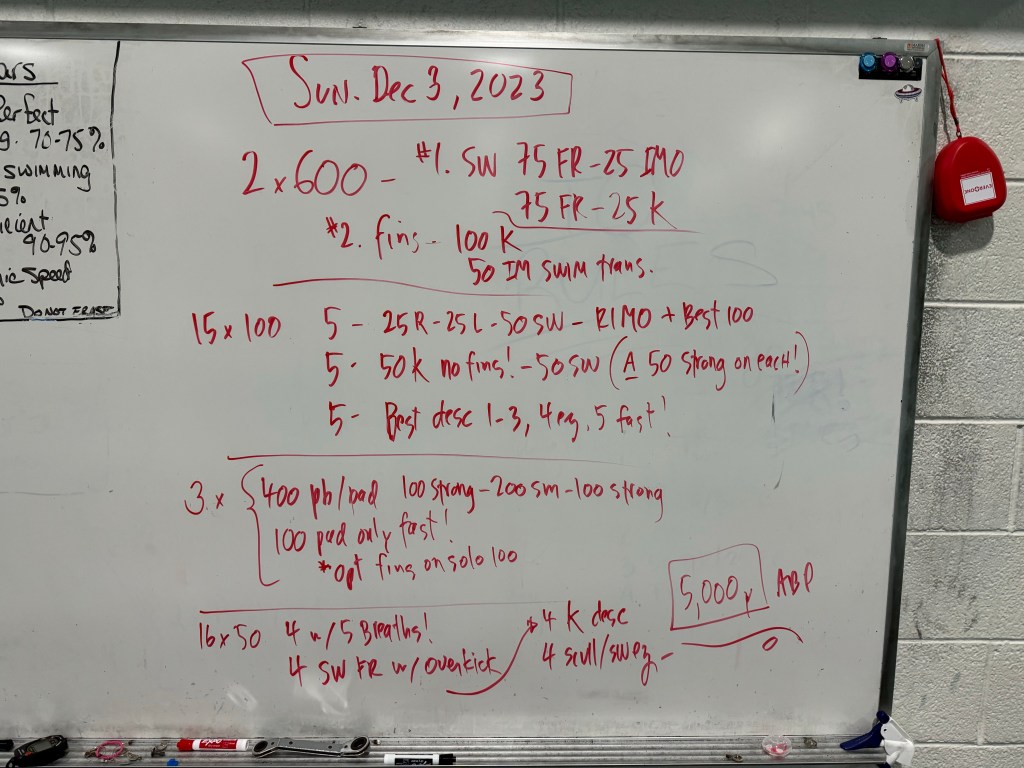 ars
erfect
g. 70-75%
SWIMMING
5%
icient
90-95%
ic Speed
DO NOT ERASE
Sun. Dec 3, 2023
2 x 600 - #1. SW 75 FR - 25 IMO
75 FR - 25 K
#2. fins - 100 K
50 IM SWIM trans.
15 x 100 5 - 25 R - 25 L - 50 SW - RIMO + Best 100
5 - 50 K no fins! - 50 SW (A 50 strong on each!)
5 - Best desc 1-3, 4 ez, 5 fast!
3 x { 400 pb/pad 100 strong - 200 sm - 100 strong
100 pad only fast!
*opt fins on solo 100
16 x 50 4 w/ 5 Breaths!
4 SW FR w/ overkick
4 K desc
4 scull/sw ez -
5,000 y ABP